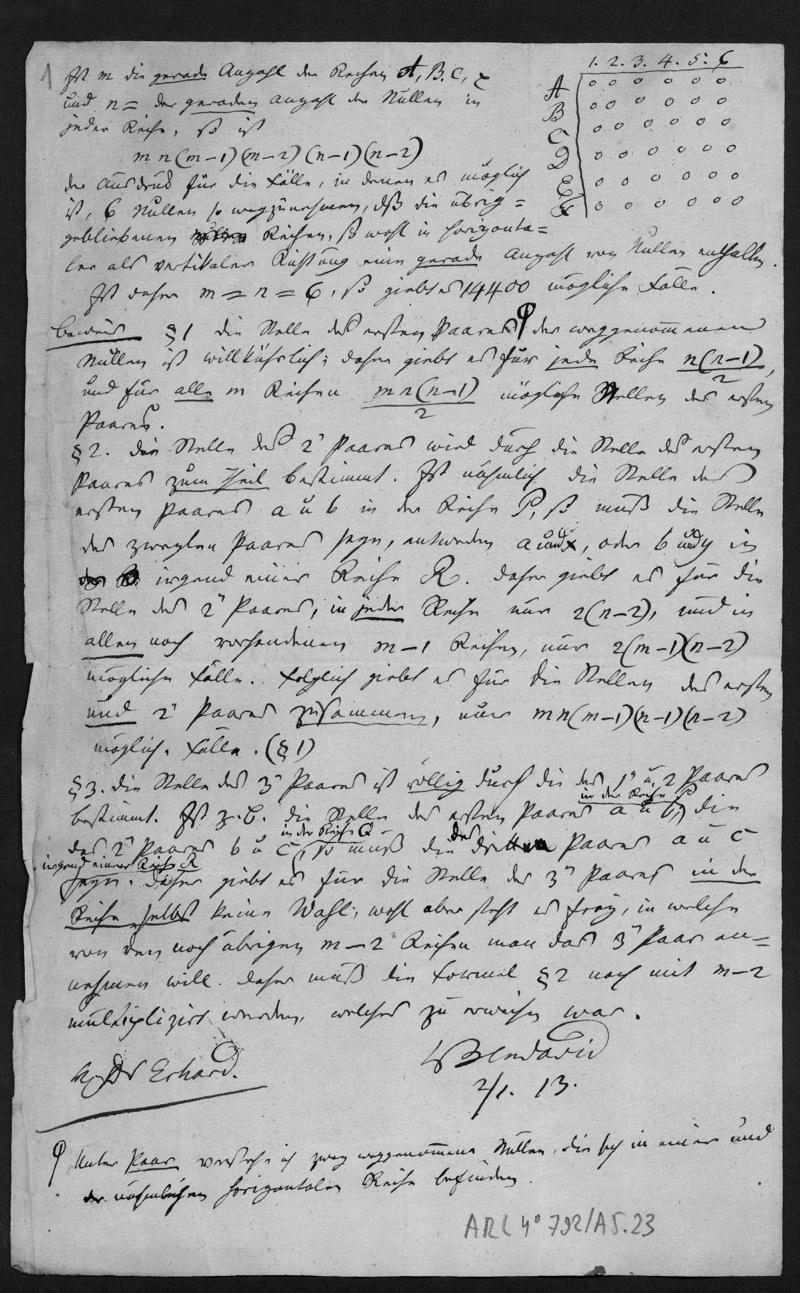 1
Ist m die gerade Anzahl der Reihen A, B, C, &
und n = der geraden Anzahl der Nullen in
jeder Reihe, so ist
mn(m-1)(m-2)(n-1)(n-2)
der Ausdruck für die Fälle, in denen es möglich
ist, 6 Nullen so wegzunehmen, daß die übrig=
gebliebenen Reihen, so wohl in horizonta=
ler als vertikaler Richtung eine gerade Anzahl von Nullen enthalten.
Ist daher m = n = 6, so giebt es 14400 mögliche Fälle.
1. 2. 3. 4. 5. 6
A o o o o o o
B o o o o o o
C o o o o o o
D o o o o o o
E o o o o o o
F o o o o o o
Beweis §1 die Stelle des ersten Paares der weggenommenen
Nullen ist willkührlich; daher giebt es für jede Reihe n(n-1)/2,
und für alle m Reihen mn(n-1)/2 mögliche Stellen des ersten
Paares.
§2. die Stelle des 2" Paares wird durch die Stelle des ersten
Paares zum Theil bestimmt. Ist nähmlich die Stelle des
ersten Paares a u b in der Reihe P, so muß die Stelle
des zweyten Paares seyn, entweder a und x, oder b und y in
irgend einer Reihe R. daher giebt es für die
Stelle des 2" Paares, in jeder Reihe nur 2(n-2), und in
allen noch vorhandenen m-1 Reihen, nur 2(m-1)(n-2)
mögliche Fälle. Folglich giebt es für die Stellen des ersten
und 2" Paares zusammen, nur mn(m-1)(n-1)(n-2)
möglich. Fälle. (§1)
§3. die Stelle des 3" Paares ist völlig durch die des 1" u. 2 Paares
bestimmt. Ist z.B. die Stelle des ersten Paares a u b, in der Reihe P die
des 2" Paares b u c, in der Reihe Q so muß die des dritten Paares a u c
irgend einer Reihe R seyn. Daher giebt es für die Stelle des 3" Paares in der
Reihe selbst keine Wahl; wohl aber steht es frey, in welche
von den noch übrigen m-2 Reihen man das 3" Paar an=
nehmen will. Daher muß die Formel §2 noch mit m-2
multiplizirt werden, welches zu erweisen war.
Erhard.
LBendavid
2/1. 13.
Unter Paar verstehe ich zwey weggenommene Nullen, die sich in einer und
der nähmlichen horizontalen Reihe befinden.
ARC 4° 792/A5.23